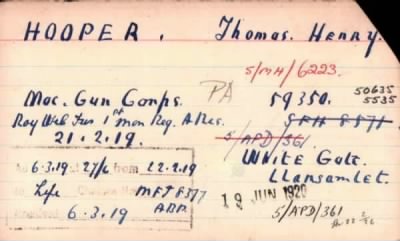 HOOPER. Thomas. Henry.
5/MH/6223.
Mac. Gun Corps. PA 59350. 50635
5535
Roy Wel Fus 1st Mon Reg. A Res. SFH 8571
21.2.19. 5/APD/361
6.3.19 27/6 from 22.2.19
White Gate.
Llansamlet.
to Life MFJ 8577
19 JUN 1920
6.3.19
5/APD/361